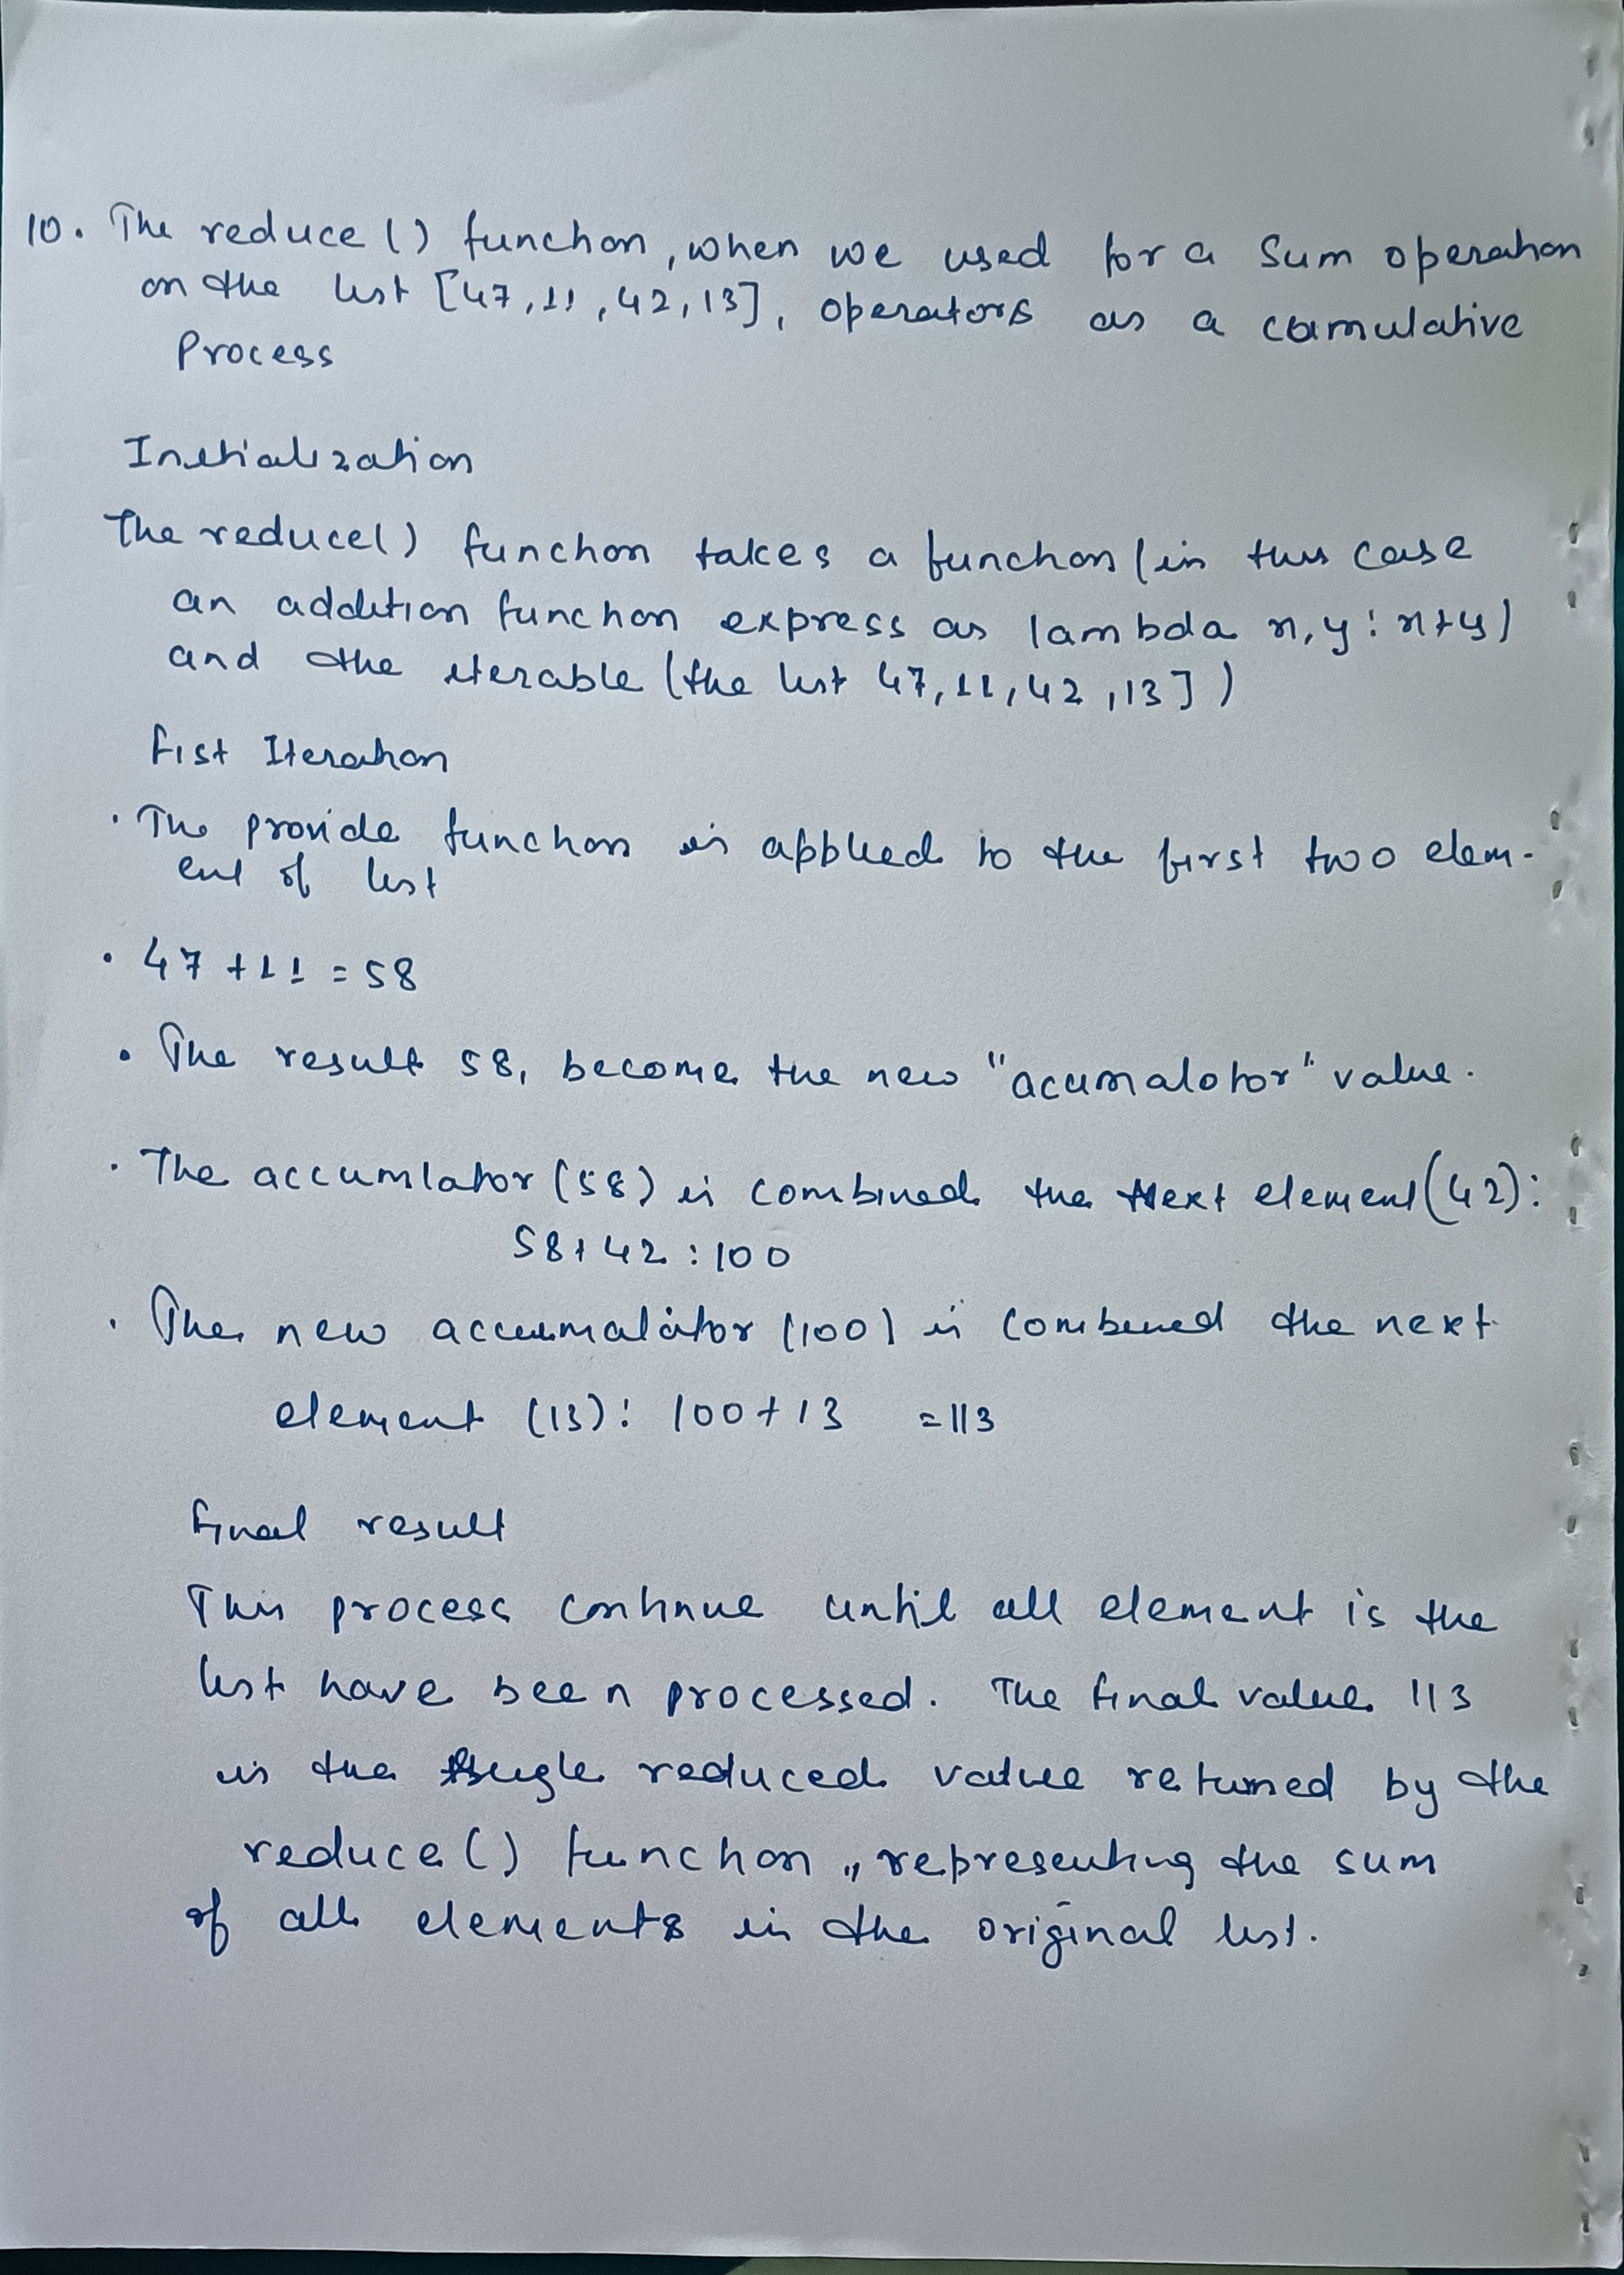 10. The reduce () function, when we used for a Sum operation
on the list [47, 11, 42, 13], operators as a camulative
Process
Initialization
The reduce() function takes a function (in this case
an addition function express as lambda x, y: x+y)
and the iterable (the list 47, 11, 42, 13])
Fist Iteration
• The provide function is applied to the first two elem-
ent of list
• 47 + 11 = 58
• The result 58, become the new "acumalotor" value.
• The accumlator (58) is combined the Next element (42):
58 + 42 : 100
• The new accumalator (100) is combined the next
element (13): 100 + 13 = 113
Final result
This process continue until all element is the
list have been processed. The final value 113
is the single reduced value returned by the
reduce () function, representing the sum
of all elements in the original list.